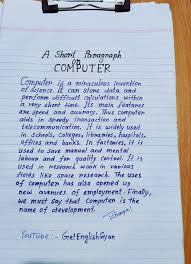 A Short Paragraph
on
COMPUTER
Computer is a miraculous invention
of science. It can store data and
perform difficult calculations within
a very short time. Its main features
are speed and accuracy. Thus computer
aids in speedy transaction and
telecommunication. It is widely used
in schools, colleges, libraries, hospitals,
offices and books. In factories, it is
used to save manual and mental
labour and for quality control. It is
used in research work in various
fields like space research. The uses
of computer has also opened up
new avenues of employment. Finally,
we must say that Computer is the
name of development.
YouTube:- GetEnglishGyan